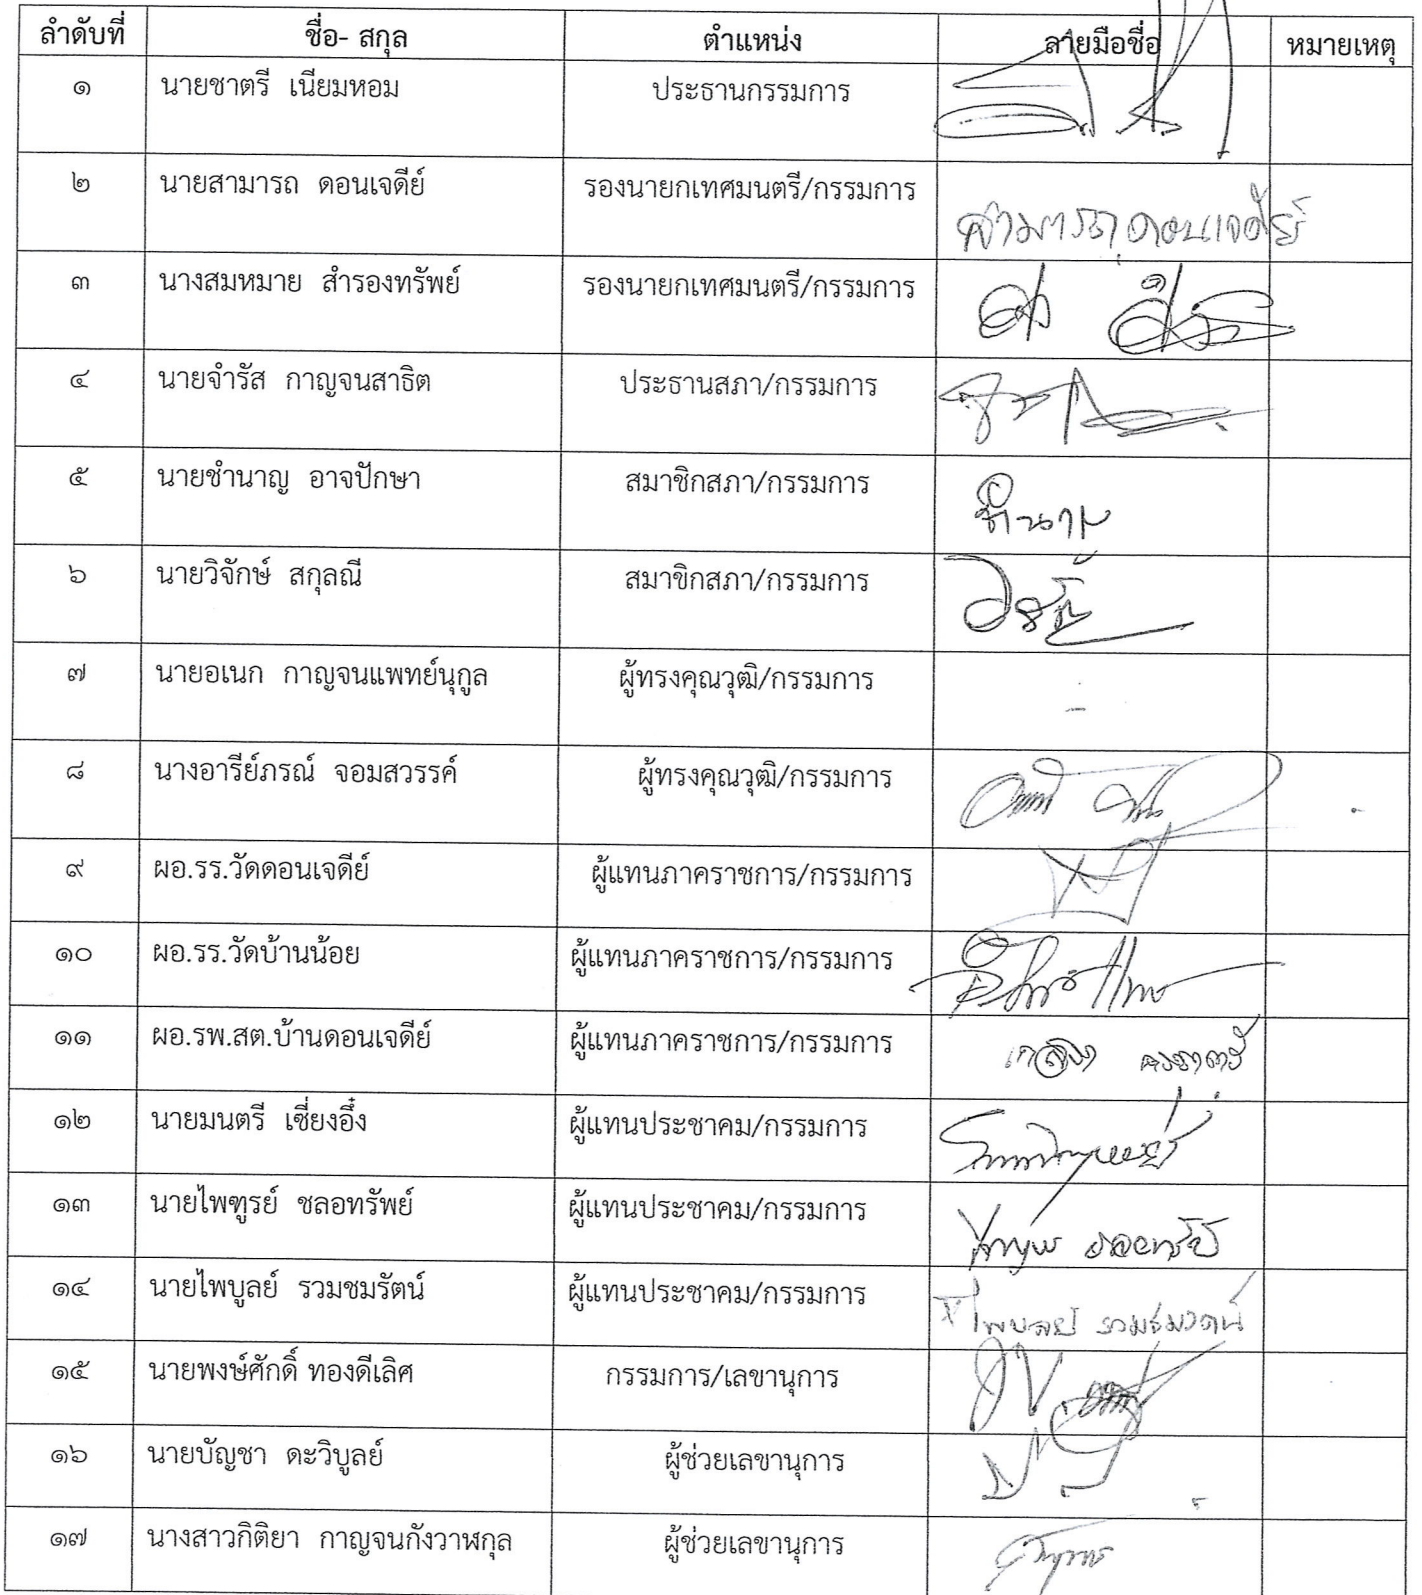 ลำดับที่ ชื่อ- สกุล ตำแหน่ง ลายมือชื่อ หมายเหตุ
๑ นายชาตรี เนียมหอม ประธานกรรมการ
๒ นายสามารถ ดอนเจดีย์ รองนายกเทศมนตรี/กรรมการ สามารถ ดอนเจดีย์
๓ นางสมหมาย สำรองทรัพย์ รองนายกเทศมนตรี/กรรมการ
๔ นายจำรัส กาญจนสาธิต ประธานสภา/กรรมการ
๕ นายชำนาญ อาจปักษา สมาชิกสภา/กรรมการ ชำนาญ
๖ นายวิจักษ์ สกุลณี สมาขิกสภา/กรรมการ
๗ นายอเนก กาญจนแพทย์นุกูล ผู้ทรงคุณวุฒิ/กรรมการ -
๘ นางอารีย์ภรณ์ จอมสวรรค์ ผู้ทรงคุณวุฒิ/กรรมการ
๙ ผอ.รร.วัดดอนเจดีย์ ผู้แทนภาคราชการ/กรรมการ
๑๐ ผอ.รร.วัดบ้านน้อย ผู้แทนภาคราชการ/กรรมการ
๑๑ ผอ.รพ.สต.บ้านดอนเจดีย์ ผู้แทนภาคราชการ/กรรมการ
๑๒ นายมนตรี เซี่ยงอึ๋ง ผู้แทนประชาคม/กรรมการ
๑๓ นายไพฑูรย์ ชลอทรัพย์ ผู้แทนประชาคม/กรรมการ
๑๔ นายไพบูลย์ รวมชมรัตน์ ผู้แทนประชาคม/กรรมการ ไพบูลย์ รวมชมรัตน์
๑๕ นายพงษ์ศักดิ์ ทองดีเลิศ กรรมการ/เลขานุการ
๑๖ นายบัญชา ดะวิบูลย์ ผู้ช่วยเลขานุการ
๑๗ นางสาวกิติยา กาญจนกังวาฬกุล ผู้ช่วยเลขานุการ